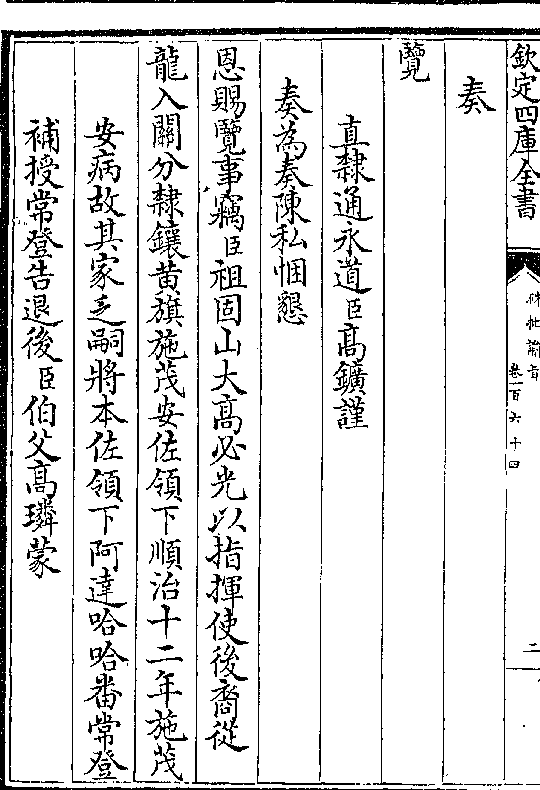 欽定四庫全書
硃批諭旨
卷一百六十四
二
奏
覽
直隸通永道臣高鑛謹
奏為奏陳私悃懇
恩賜覽事竊臣祖固山大高必光以指揮使後裔從
龍入關分隸鑲黃旗施茂安佐領下順治十二年施茂
安病故其家乏嗣將本佐領下阿達哈哈番常登
補授常登告退後臣伯父高璘蒙